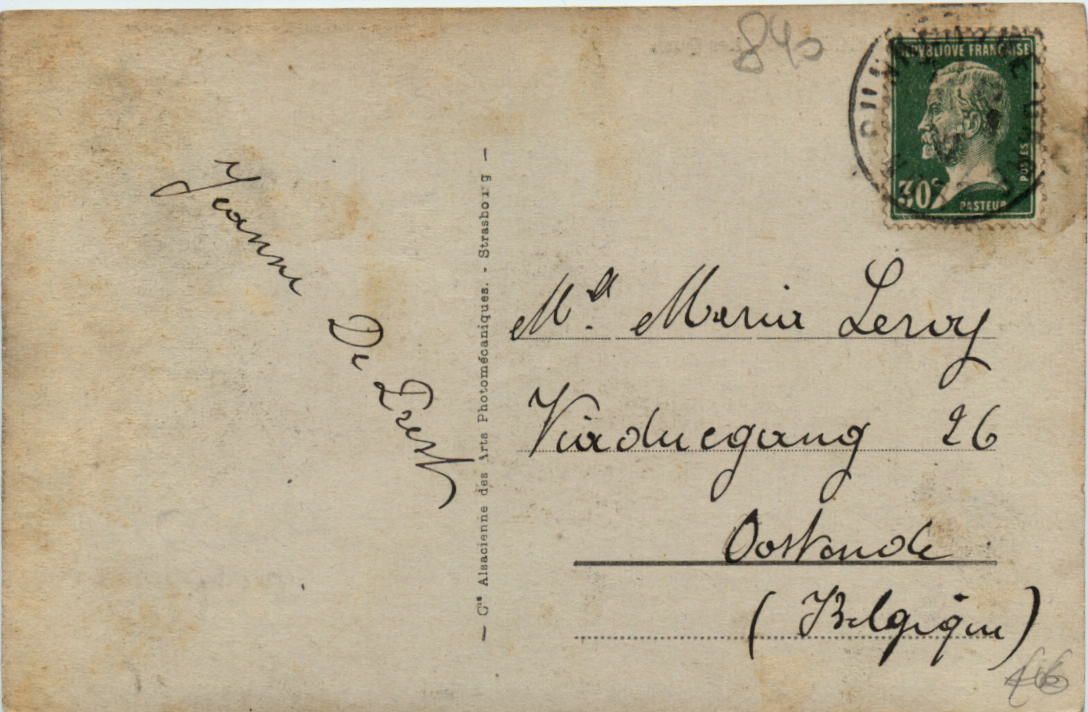 840
REPUBLIQUE FRANÇAISE
POSTES
30c
PASTEUR
Jeanne
De
— Cie Alsacienne des Arts Photomécaniques. - Strasbourg —
Mlle Maria Leroy
Viaducgang 26
Oostende
(Belgique)